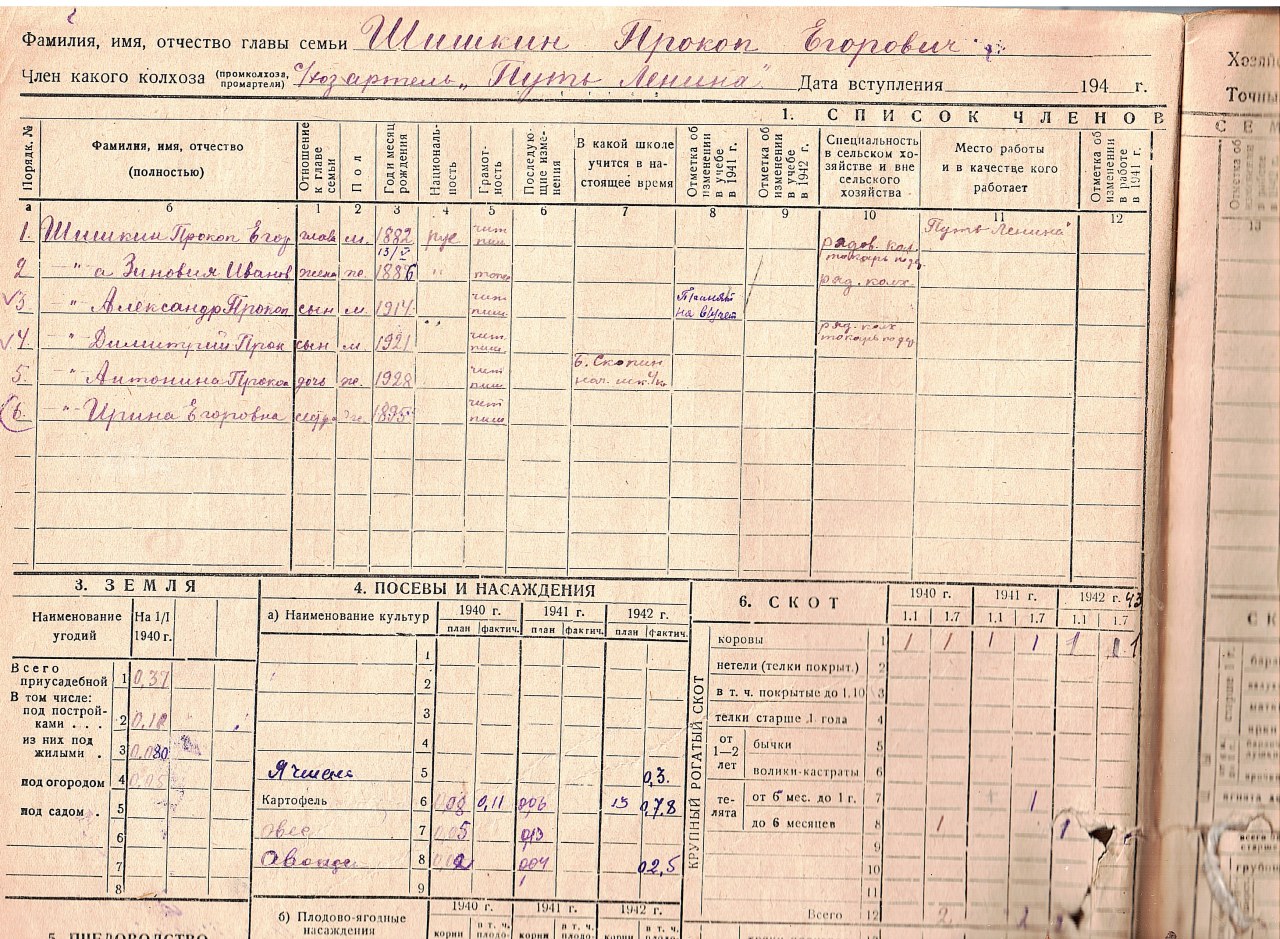 Фамилия, имя, отчество главы семьи Шишкин Прокоп Егорович
Член какого колхоза (промколхоза, промартели) с/хоз артель „Путь Ленина" Дата вступления 194 г.
1. СПИСОК ЧЛЕНОВ
Порядк. № Фамилия, имя, отчество (полностью) Отношение к главе семьи Пол Год и месяц рождения Националь-ность Грамот-ность Последую-щие изме-нения В какой школе учится в на-стоящее время Отметка об изменении в учебе в 1941 г. Отметка об изменении в учебе в 1942 г. Специальность в сельском хо-зяйстве и вне сельского хозяйства Место работы и в качестве кого работает Отметка об изменении в работе в 1941 г.
а б 1 2 3 4 5 6 7 8 9 10 11 12
1. Шишкин Прокоп Егор глава м. 1882 рус чит пиш рядов. кол. токарь по дер. Путь Ленина"
2 –"– а Зиновия Иванов жена же. 1886 " ряд. колх.
3. –"– Александр Прокоп сын м. 1914 " чит пиш
4. –"– Димитрий Прок сын м. 1921 чит. пиш. ряд. колх. токарь по дер
5. –"– Антонина Прокоп дочь же. 1928 чит пиш Б. Скопин нач. шк. 4 кл
6. –"– Ирина Егоровна сестра же. 1895 чит пиш
3. ЗЕМЛЯ
Наименование угодий На 1/I 1940 г.
Всего приусадебной 1 0,37
В том числе:
под построй-ками . . . 2
из них под жилыми . 3 0,080
под огородом 4
под садом . 5
6
7
8
5. ПЧЕЛОВОДСТВО
4. ПОСЕВЫ И НАСАЖДЕНИЯ
а) Наименование культур 1940 г. 1941 г. 1942 г.
план фактич. план фактич. план фактич.
1
2
3
4
Ячмень 5 0,3.
Картофель 6 0,11 006 15 0,78
овес 7 0,05 013
Овощи 8 004 02,5
9
б) Плодово-ягодные насаждения 1940 г. 1941 г. 1942 г.
корни в т. ч. плодо- корни в т. ч. плодо- корни в т. ч. плодо-
6. СКОТ
1940 г. 1941 г. 1942 г. 43
1.1 1.7 1.1 1.7 1.1 1.7
КРУПНЫЙ РОГАТЫЙ СКОТ
коровы 1 1 1 1 1 1 1 1
нетели (телки покрыт.) 2
в т. ч. покрытые до 1.10 3
телки старше 1 года 4
от 1—2 лет бычки 5
волики-кастраты 6
те-лята от 6 мес. до 1 г. 7 1
до 6 месяцев 8 1 1
9
10
11
Всего 12 2 2